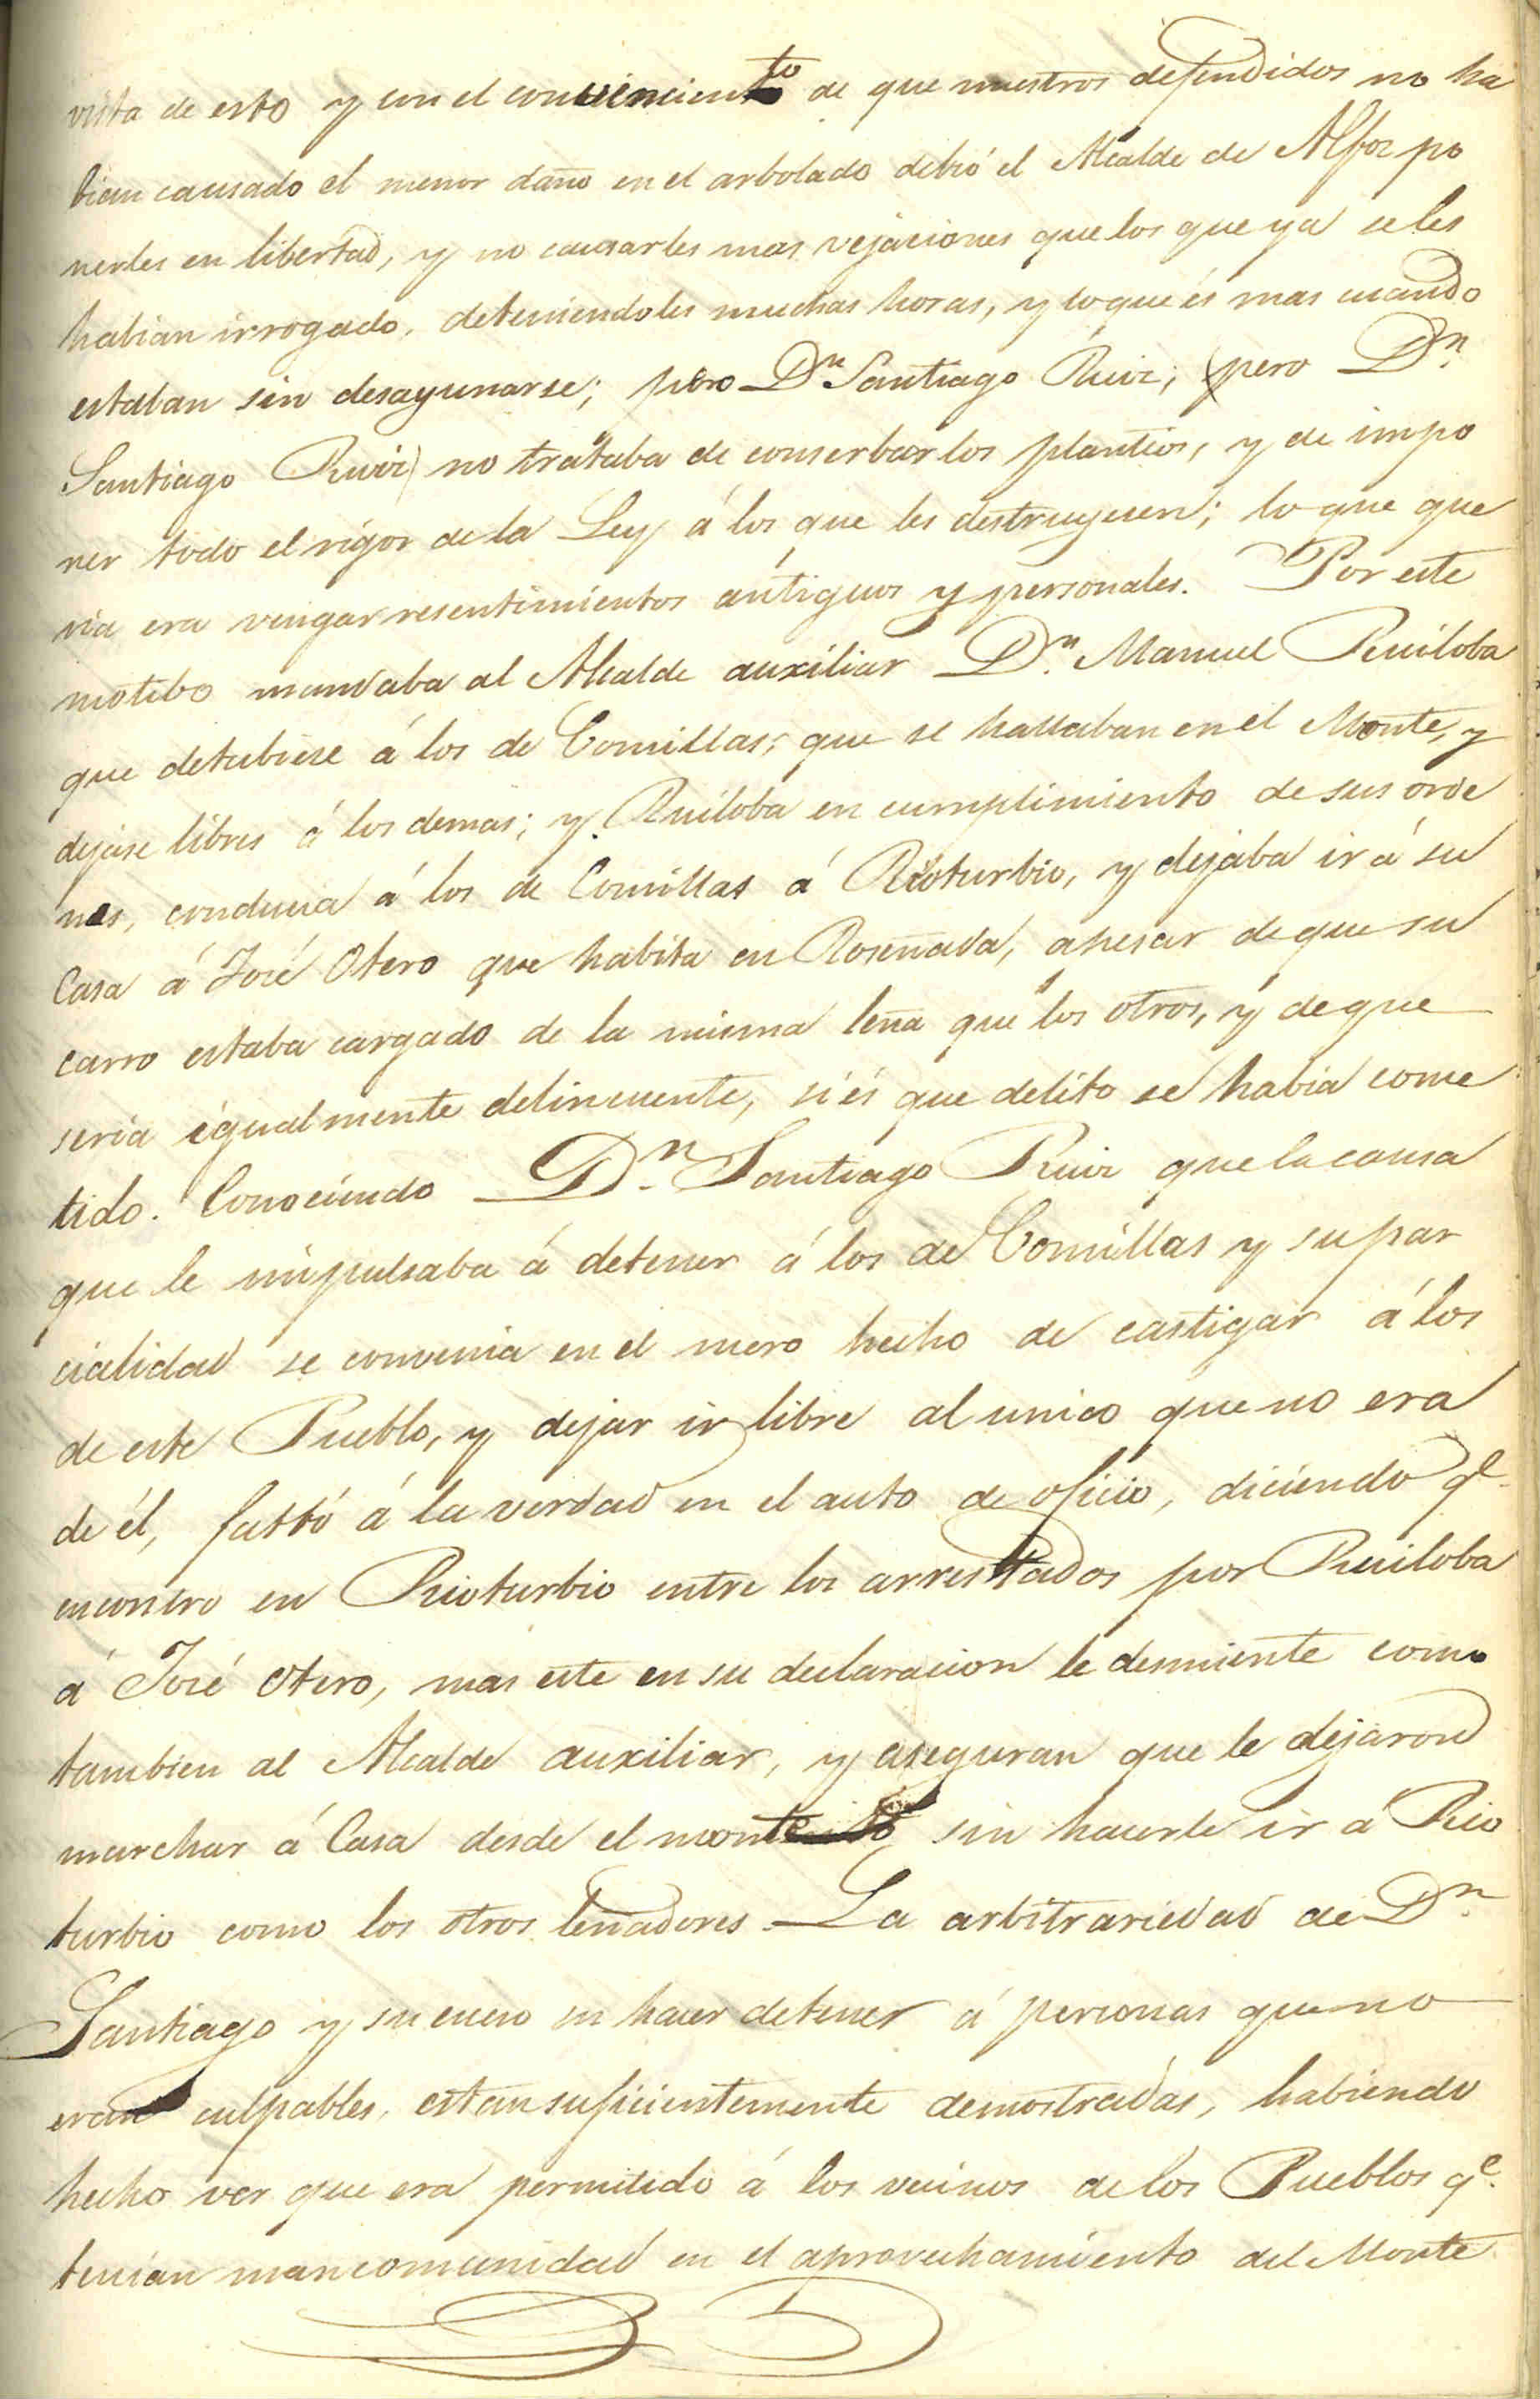 vista de esto y con el convencimiento de que nuestros defendidos no ha
bian causado el menor daño en el arbolado debió el Alcalde de Alfoz po
nerles en libertad, y no causarles mas vejaciones que los que ya se les
habian irrogado, deteniendoles muchas horas, y lo que és mas cuando
estaban sin desayunarse; pero Dn Santiago Ruiz; (pero Dn.
Santiago Ruiz) no trataba de conserbar los plantios, y de impo
ner todo el rigor de la Ley á los que les destruyesen; lo que que
ria era vengar resentimientos antiguos y personales. Por este
motibo mandaba al Alcalde auxiliar Dn. Manuel Ruiloba
que detubiese á los de Comillas, que se hallaban en el Monte, y
dejase libres á los demas; y Ruiloba en cumplimiento de sus orde
nes, conducia á los de Comillas á Rioturbio, y dejaba ir á su
Casa á José Otero que habita en Roseñada, apesar de que su
carro estaba cargado de la misma leña que los otros, y de que
seria igualmente delincuente, si és que delito se habia come
tido. Conociendo Dn. Santiago Ruiz que la causa
que le impulsaba á detener á los de Comillas y su par
cialidad se convenia en el mero hecho de castigar á los
de este Pueblo, y dejar ir libre al unico que no era
de él, faltó á la verdad en el auto de oficio, diciendo qe.
encontro en Rioturbio entre los arrestados por Ruiloba
á José Otero, mas este en su declaracion le desmiente como
tambien al Alcalde auxiliar, y aseguran que le dejaron
marchar á Casa desde el monte sin hacerle ir á Rio
turbio como los otros leñadores. La arbitrariedad de Dn.
Santiago y su en hacer detener á personas que no
eran culpables, estan suficientemente demostradas, habiendo
hecho ver que era permitido á los vecinos de los Pueblos qe.
tenian mancomunidad en el aprovechamiento del Monte